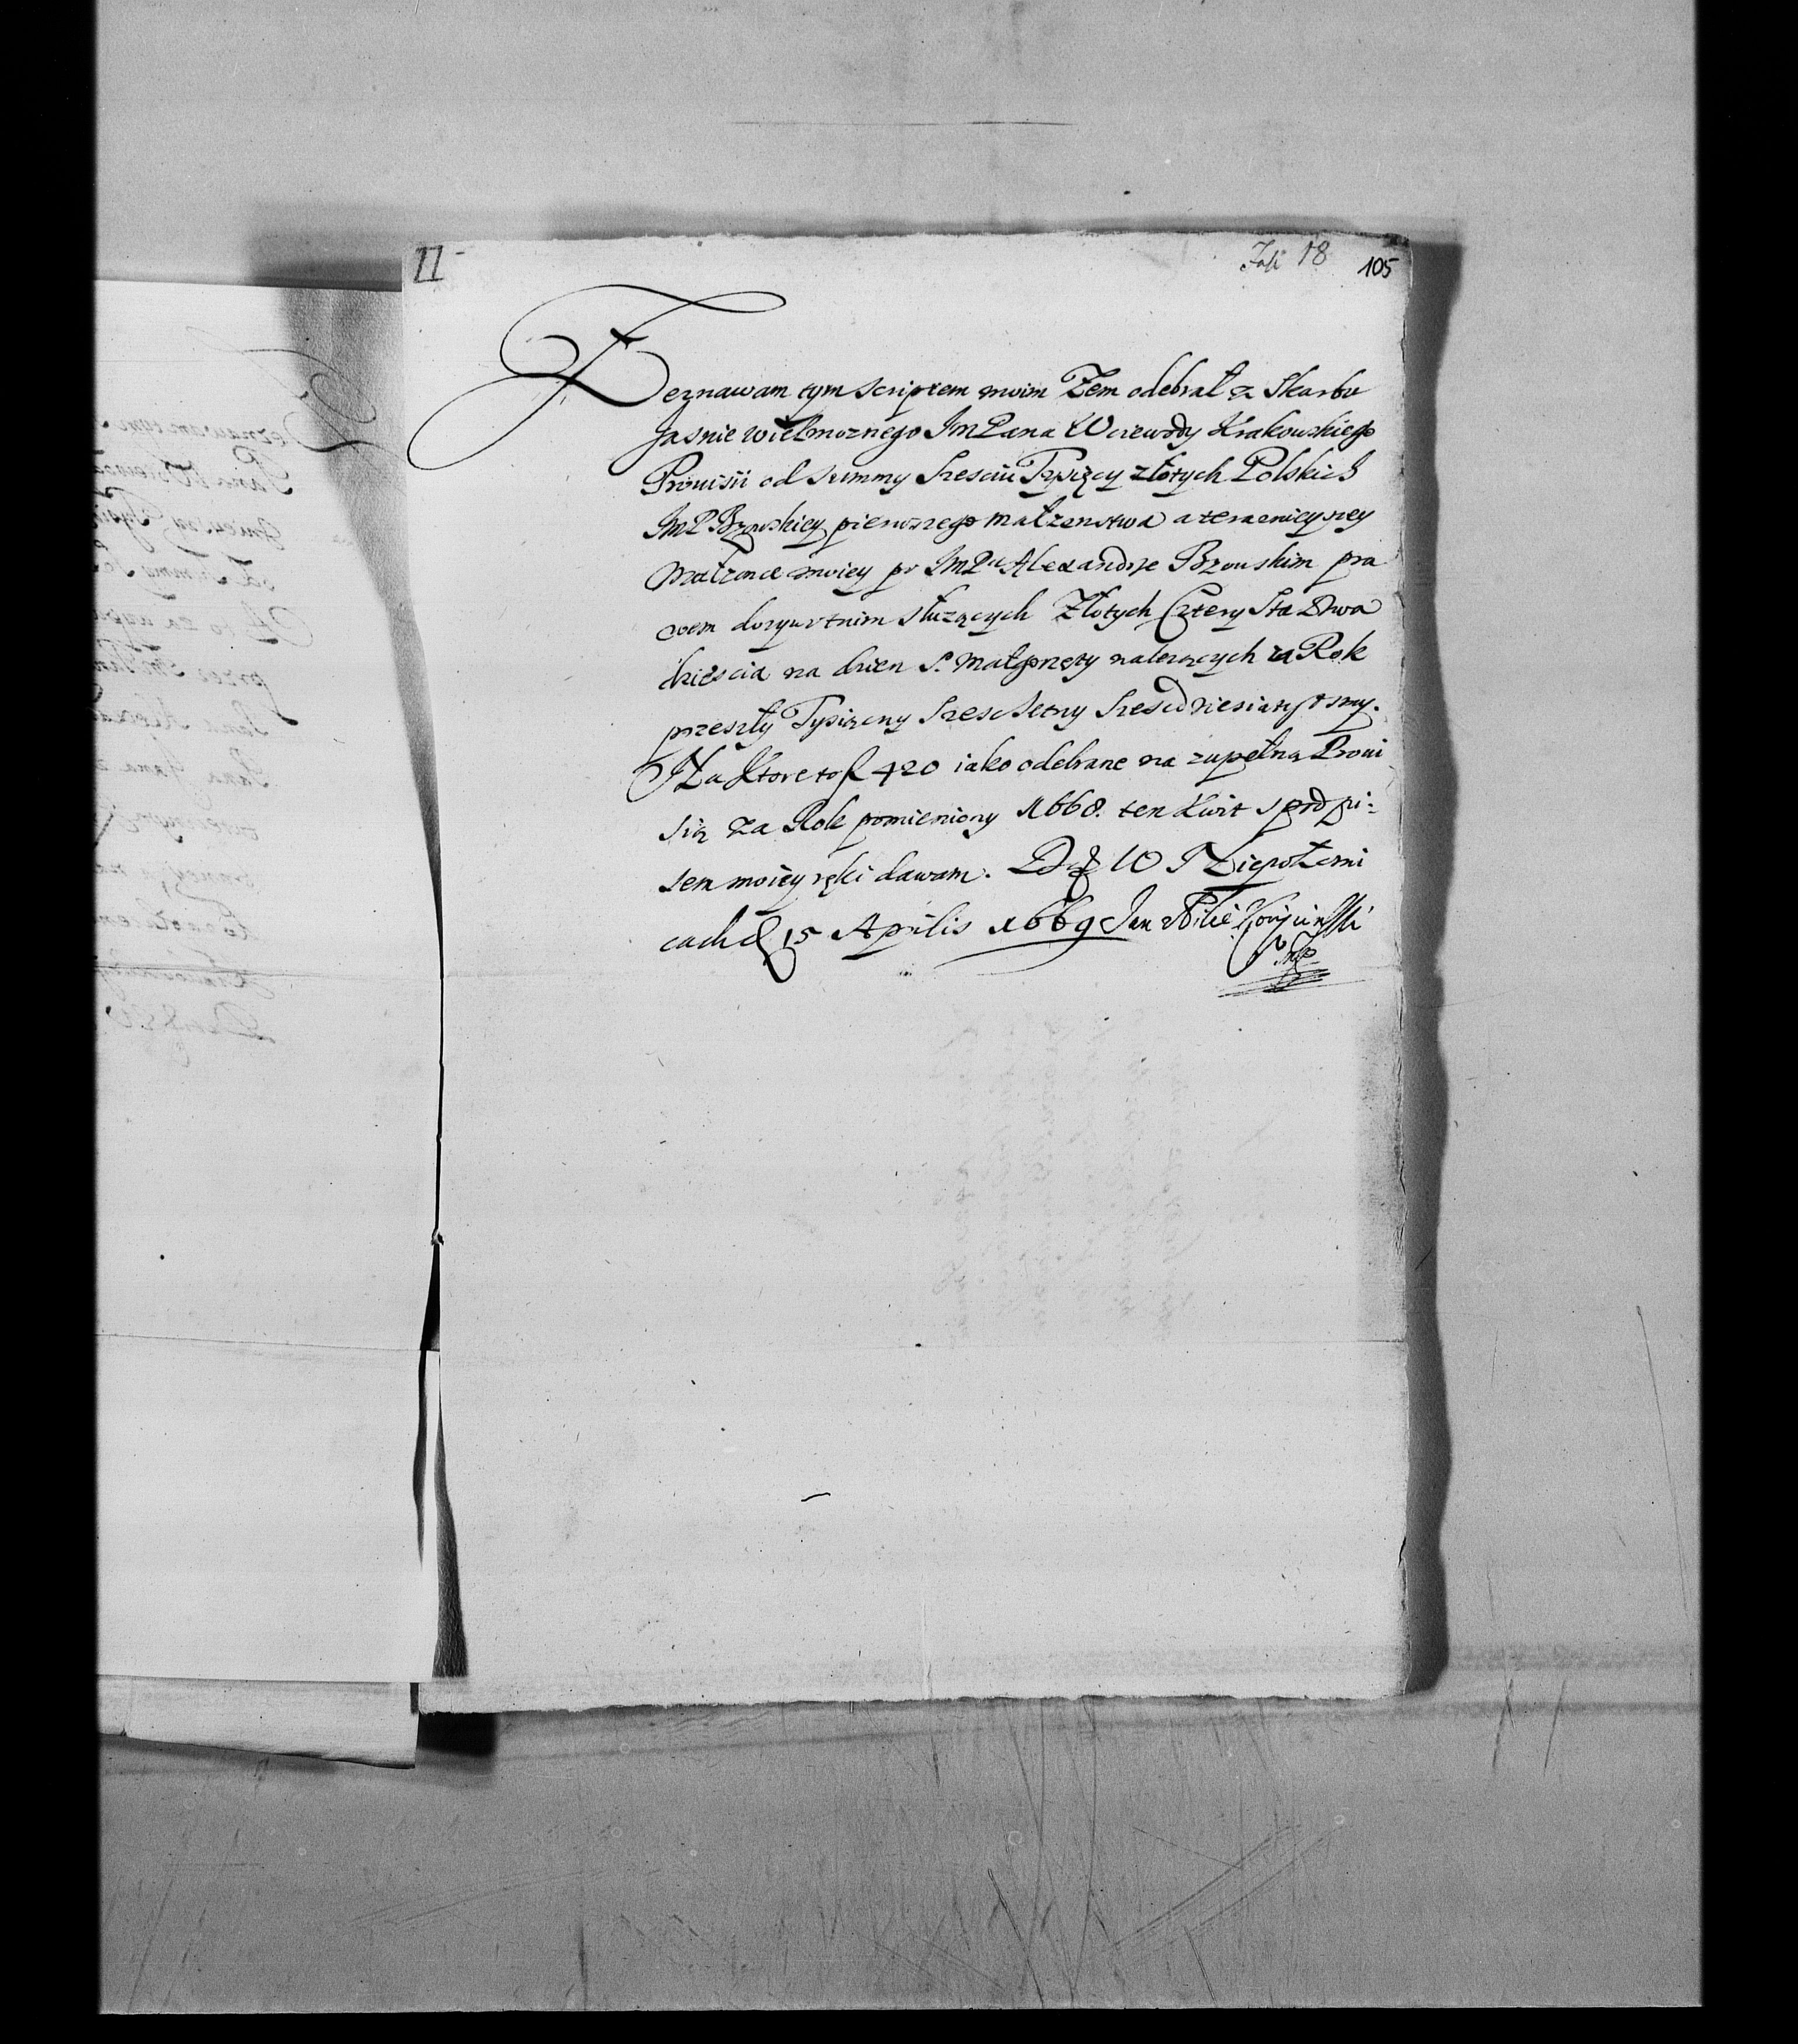 11
Foli 18 105
Zeznawam tym Scriptem moim Zem odebrał z Skarbu
Jasnie wielmoznego JmPana Woiewody Krakowskiego
Prowisii od Summy Szesciu Tysięcy złotych Polskich
JmP Bzowskiey pierwszego małzenstwa a teraznieyszey
Małzonce moiey po JmPu Alexandrze Bzowskim pra
wem dozywotnim słuzących Złotych Cztery Sta Dwa
dziescia na dzien S. Małgorzęty nalezących za Rok
przeszły Tysiączny Szescsetny Szescdziesiąty osmy.
Za Ktore to f 420 iako odebrane na zupełną Prowi
sią za Rok pomieniony 1668. ten Kwit s podpi:
sem moiey ręki dawam. W
cach d 15 Aprilis 1669 Jan